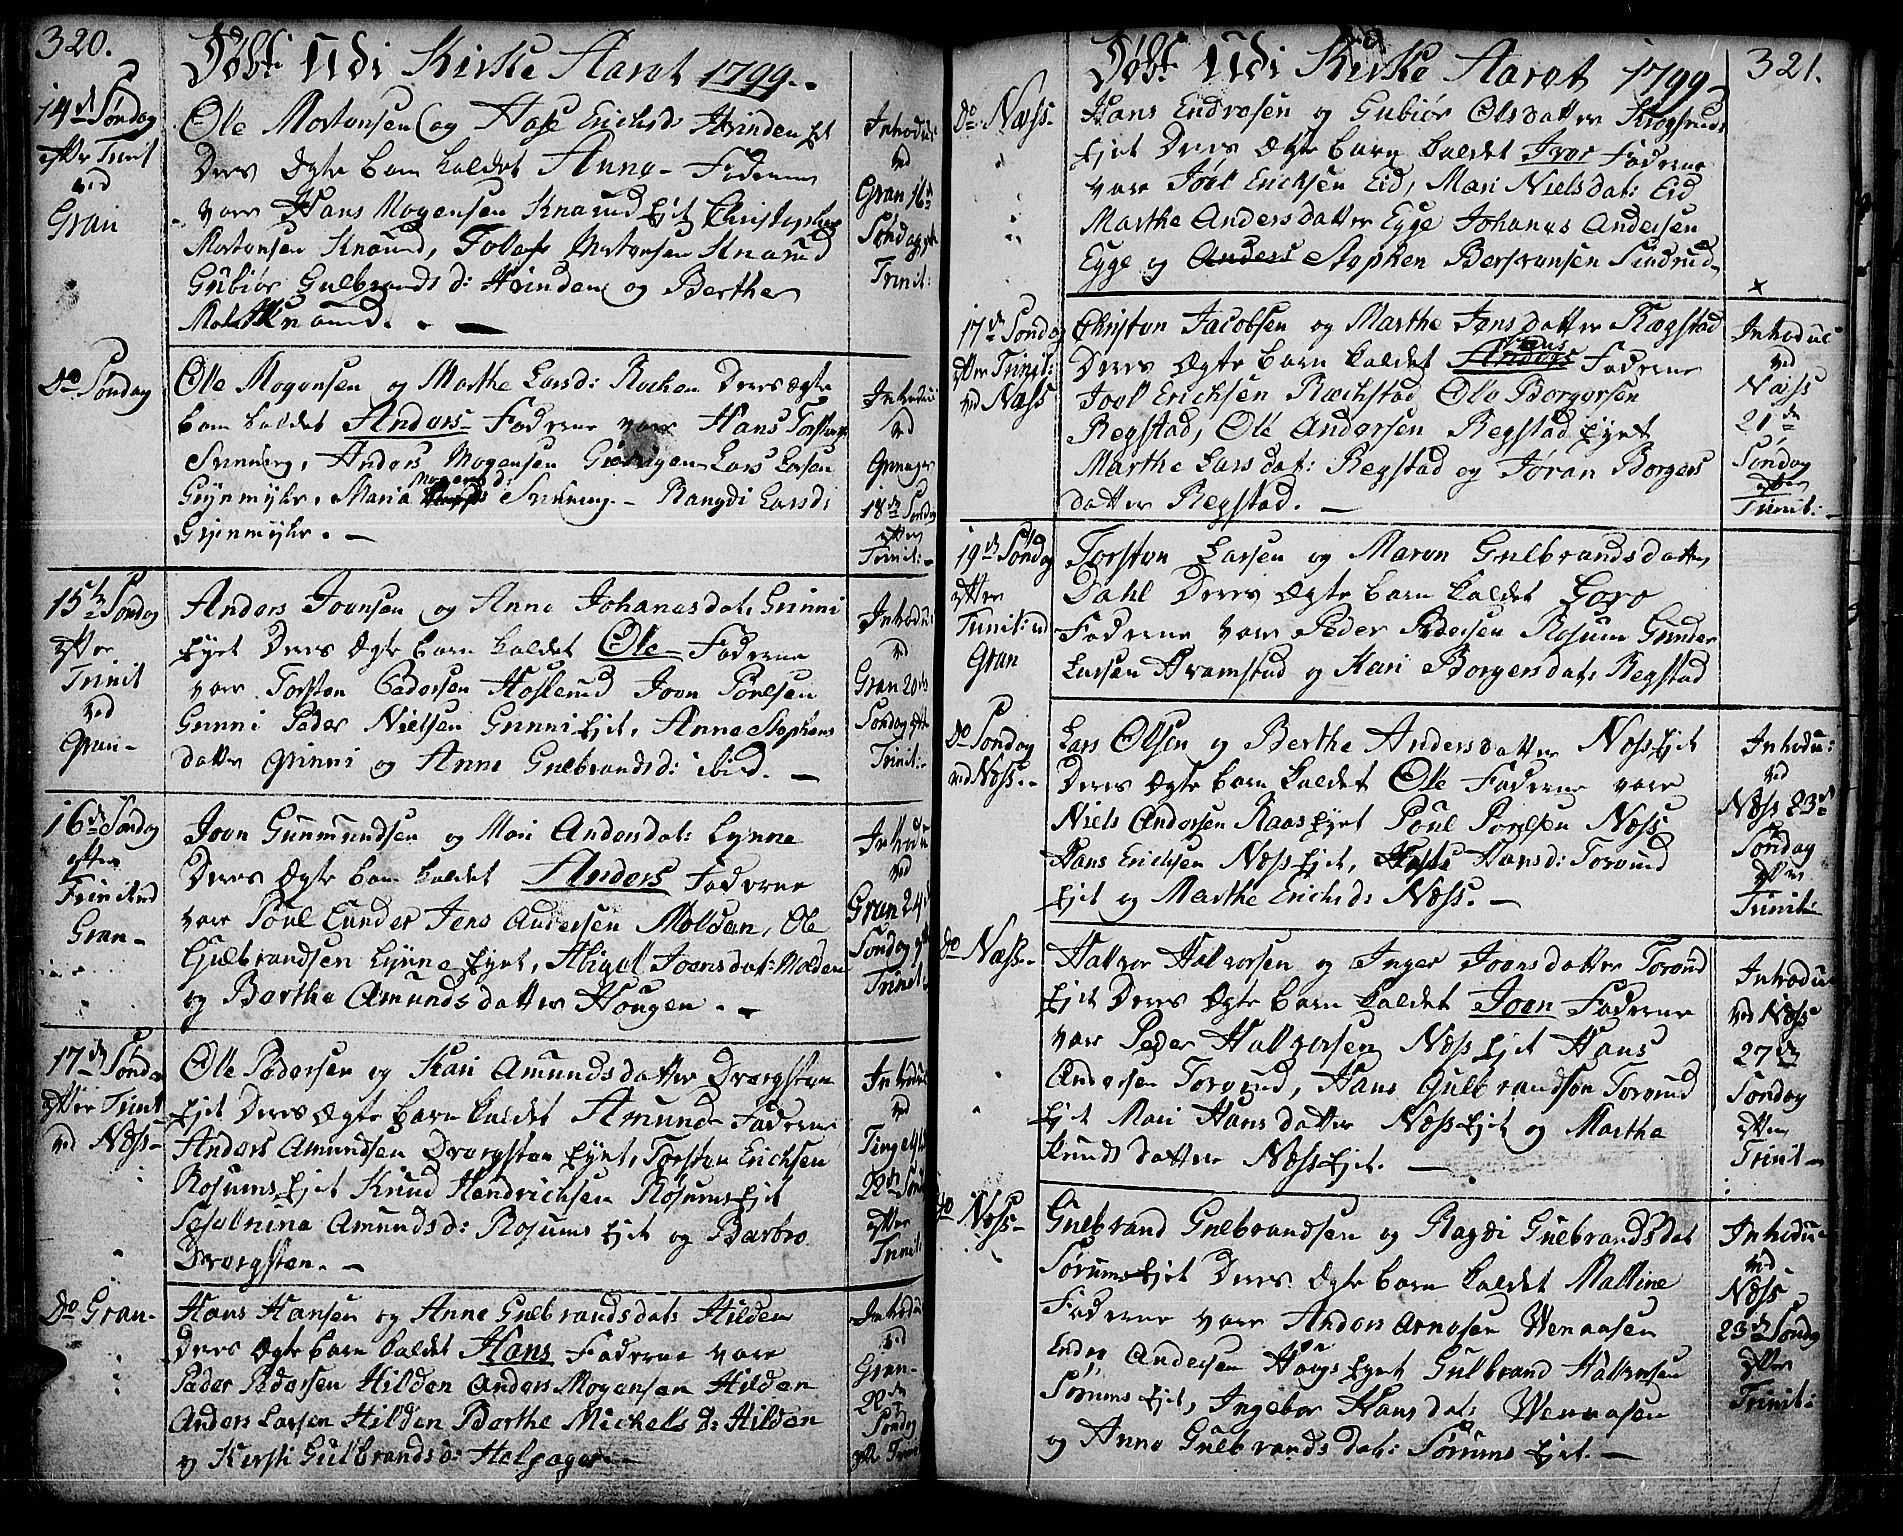 320.
Døbt udi Kirke Aaret 1799.
14de Søndag
efter Trinit
ved
Gran
Ole Mortensen og Erichsd Hvinden Ejt
Deres Ægte barn kaldet Anne - Fadderne
vare Hans Mogensen Knarud Ejet Christopher
Mortensen Knarud, Mortensen Knarud
Gubiør Gulbrands d: Hvinden og Berthe
Knarud. -
Introdu:
ved
Gran 16de
Søndag eft
Trinit:
Do Søndag
Ole Mogensen og Marthe Larsd: Rochen Deres Ægte
barn kaldet Anders - Fadderne vare Hans
Anders Mogensen Lars Larsen
Grinmyhr, Maria Mogensd: - Rangdi Larsd:
Grinmyhr. -
Introdu:
ved
18de Søndag
efter
Trinit: -
15de Søndag
efter
Trinit
ved
Gran -
Anders Joensen og Anne Johanesdat: Grinni
Ejet Deres Ægte barn kaldet Ole - Fadderne
vare Torsten Pedersen Hoslerud Joen Povelsen
Grinni Peder Nielsen Grinni Ejet, Anne Stephens
datter Grinni og Anne Gulbrandsd: ibid. -
Introdu:
ved
Gran 20de
Søndag efter
Trinit: -
16de Søndag
efter
Trinit ved
Gran -
Joen Gunmundsen og Mari Andersdat: Lynne
Deres Ægte barn kaldet Anders Fadderne
vare Poul Lunder Jens Andersen Molden, Ole
Gulbrandsen Lynne Ejet, Abigel Joensdat: Molden
og Berthe Amunds datter Hougen. -
Introdu
ved
Gran 24de
Søndag eft
Trinit:
17de Søndag
efter Trinit
ved Næss -
Ole Pedersen og Kari Amunds datter Dvergsten
Ejet Deres Ægte barn kaldet Amund - Fadderne
Anders Amundsen Dvergsten Ejet, Torsten Erichsen
Rosums Ejet Knud Hendrichsen Rosums Ejet
Amundsd: Rosums Ejet og Barbro
Dvergsten. -
Introdu:
ved
22de Sønd
efter
Trinit:
Do Gran -
Hans Hansen og Anne Gulbrandsdat: Hilden
Deres Ægte barn kaldet Hans Fadderne vare
Peder Pedersen Hilden Anders Mogensen Hilden
Anders Larsen Hilden Berthe Michels D: Hilden
og Kirsti Gulbrandsd: Helgager -
Introdu:
ved
Gran -
22de
Søndag
eft: Trinit
Døbt Udi Kirke Aaret 1799
321.
Do Næss -
Hans Endresen og Gubiør Olsdatter
Ejet Deres Ægte barn kaldet Iver Fadderne
vare Joel Erichsen Eid, Mari Nielsdat: Eid
Marthe Andersdatter Egge Johanes Andersen
Egge og Anders Stephen Bersvensen Sindrud -
17de Søndag
efter Trinit:
ved Næss
Christen Jacobsen og Marthe Jensdatter Regstad
Deres Ægte barn kaldet Anders Fadderne
Joel Erichsen Røchstad Ole Borgersen
Regstad, Ole Andersen Regstad Ejet
Marthe Larsdat: Regstad og Jøran Borgers
datter Regstad. -
Introduc
ved
Næss
21de
Søndag
efter
Trinit: -
19de Søndag
efter
Trinit: ved
Gran
Torsten Larsen og Maren Gulbrandsdatter
Dahl Deres Ægte barn kaldet Lars
Fadderne vare Peder Pedersen Rosum Gunder
Larsen Framstad og Kari Borgersdat: Regstad
Do Søndag
ved Næss. -
Lars Olsen og Berthe Anders datter Næss Ejet
Deres Ægte barn kaldet Ole Fadderne vare
Niels Andersen Raas Ejet Poul Povelsen Næss
Hans Erichsen Næss Ejet, Hansd: Torund
Ejet og Marthe Erichsd: Næss. -
Introdu:
ved
Næss 23de
Søndag
efter
Trinit: -
Do Næss -
Halvor Halvorsen og Inger Joensdatter Torund
Ejet Deres Ægte barn kaldet Joen Fadderne
vare Peder Halvorsen Næss Ejet Hans
Andersen Torund, Hans Gulbrandsen Torund
Ejet Mari Hansdatter Næss Ejet og Marthe
Knuds datter Næss Ejet. -
Introdu:
ved Næss
27de
Søndag
efter
Trinit -
Do Næss -
Gulbrand Gulbrandsen og Ragdi Gulbrandsdat
Sørums Ejet Deres Ægte barn kaldet Malline
Fadderne vare Anders Arnesen Wenaasen
Ender Andersen Haugs Ejet Gulbrand Halvorsen
Sørums Ejet, Ingebor Hansdat: Wenaasen
og Anne Gulbrandsdat: Sørums Ejet. -
Introdu -
ved
Næss
23de Søndag
efter
Trinit: